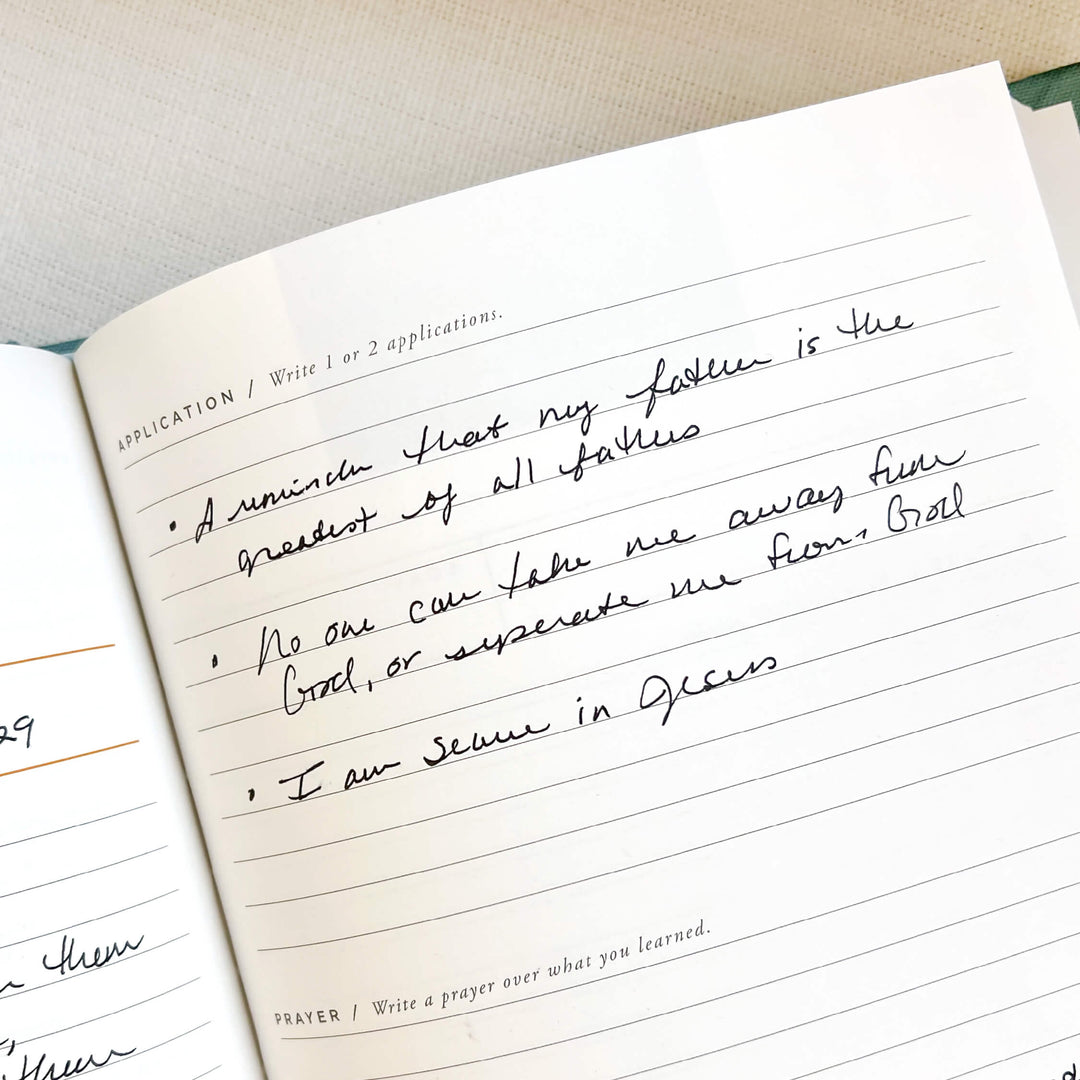 29
them
them
APPLICATION / Write 1 or 2 applications.
• A reminder that my father is the
greatest of all fathers
• No one can take me away from
God, or seperate me from God
• I am secure in Jesus
PRAYER / Write a prayer over what you learned.